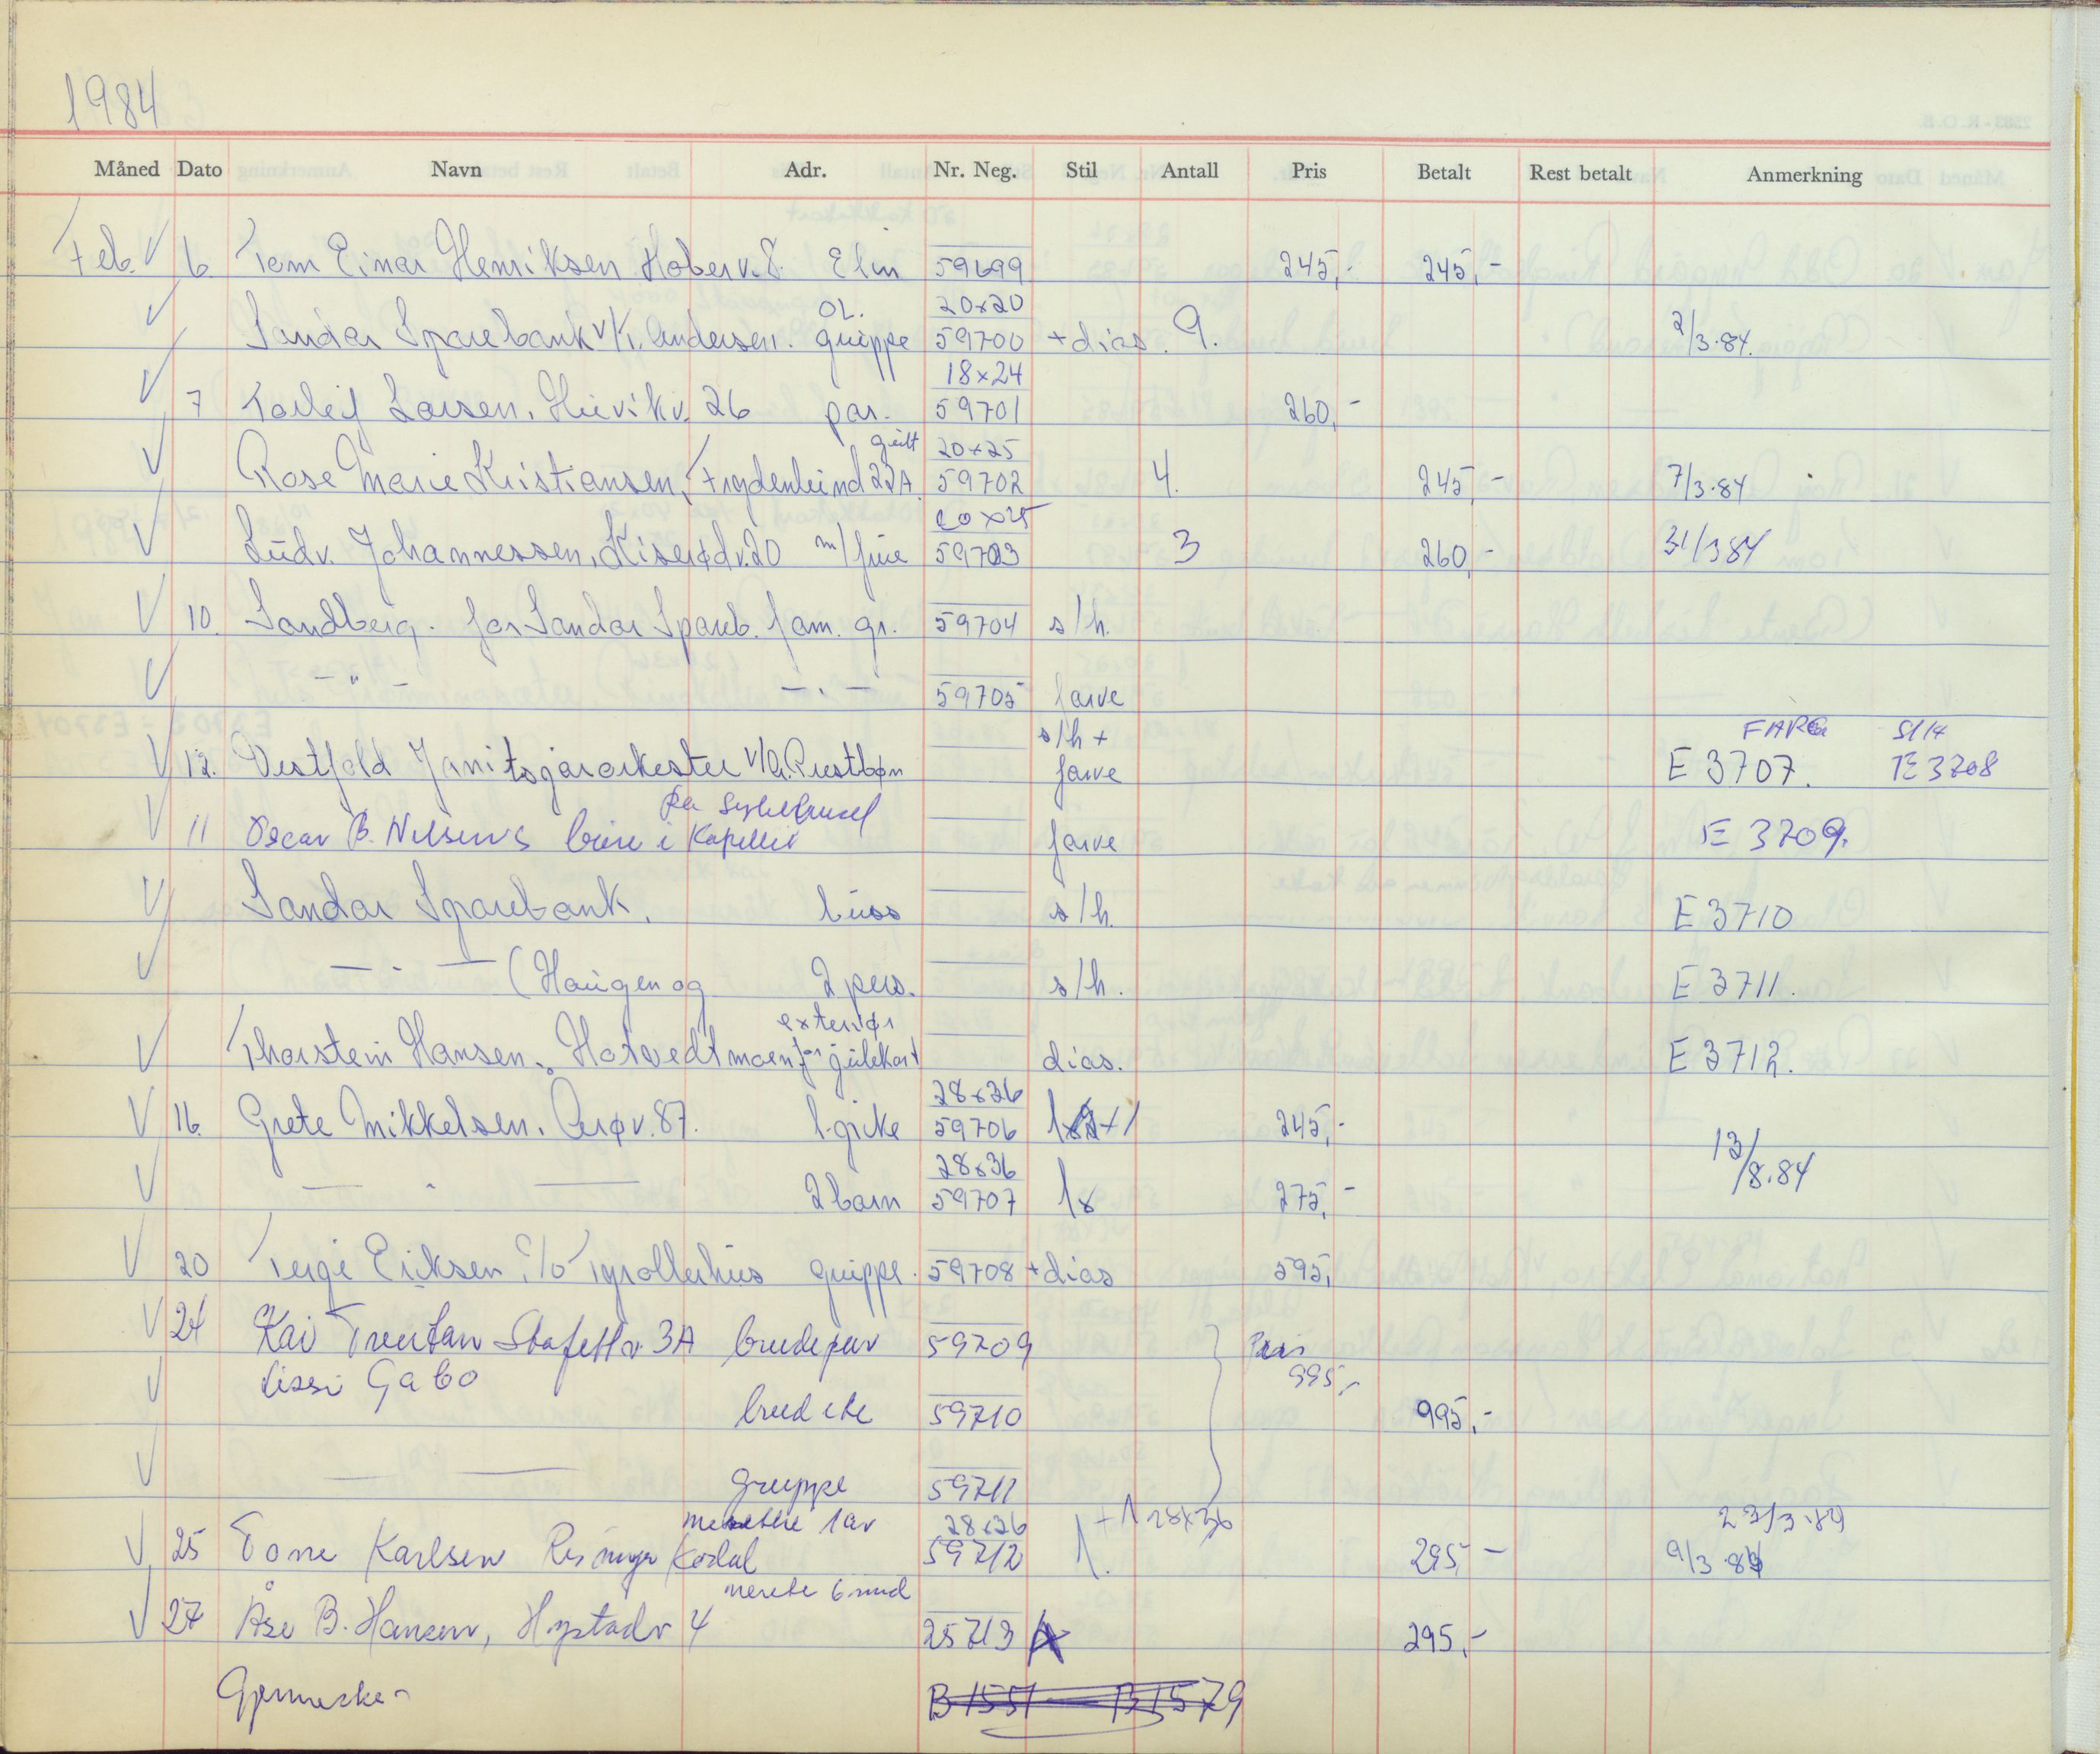 1984
Måned Dato Navn Adr. Nr. Neg. Stil Antall Pris Betalt Rest betalt Anmerkning
Feb. V 6. Tom Einar Henriksen Haberv. 8. Elin 59699 245,- 245,-
OL. 20x20
V Sandar Sparebank v/K. Andersen. gruppe 59700 + dias. 9. 2/3.84.
18x24
V 7 Torleif Larsen, Huvikv. 26 par. 59701 260,-
gutt 20x25
V Rose Marie Kristiansen, Frydenlund 22A. 59702 4. 245,- 7/3.84
20x25
V Ludv. Johannessen, Kiserødv. 20 m/frue 59703 3 260,- 31/3 84
V 10. Sandberg. for Sandar Spareb. fam. gr. 59704 s/h.
V - " - - . - 59705 farve
s/h + FARG S/H
V 12. Vestfold Janitsjarorkester v/A. Prestbøn farve E 3707. E 3708
V 11 Oscar B. Nilsens båre i Kapellet farve E 3709.
V Sandar Sparebank. buss s/h. E 3710
V - . - (Haugen og 2 pers. s/h. E 3711.
exteriør
V Thorstein Hansen. Hotvedtmoen for julekort dias. E 3712.
28x36
V 16. Grete Mikkelsen. v. 87. 1 pike 59706 245,-
28x36 13/8.84
V - " - 2 barn 59707 1x 275,-
V 20 Terje Eriksen, c/o Tyrollerhus gruppe. 59708 + dias 595,
V 24 Kai Trentan Stafettv. 3A brudepar 59709 Pris
V Lissi Gabo 995,-
brud ete 59710 995,-
V gruppe 59711
merethe 1 år 28x36 + 1 28x36 23/3.84
V 25 Tone Karlsen Kodal 59712 1. 295,- 9/3.84
merete 6 mnd
V 27 Åse B. Hansen, Hystadv 4 25713 295,-
B1551 — B1579